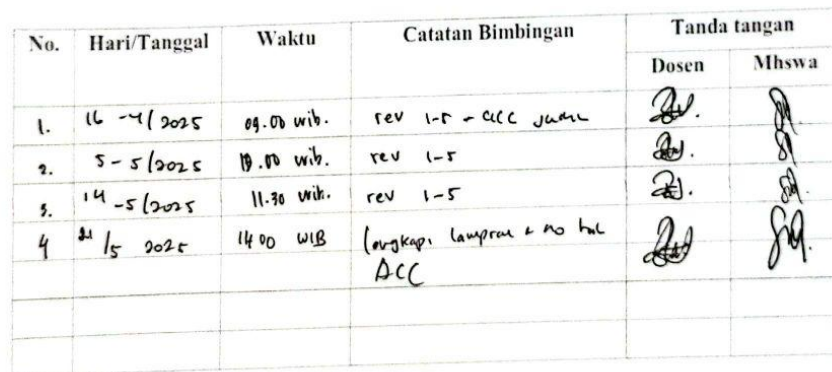 No. Hari/Tanggal Waktu Catatan Bimbingan Tanda tangan
Dosen Mhswa
1. 16 -4/2025 09.00 wib. rev 1-5 - acc
2. 5-5/2025 .00 wib. rev 1-5
3. 14-5/2025 11.30 wib. rev 1-5
4 21/5 2025 14 00 WIB Lengkapi & no hal
ACC